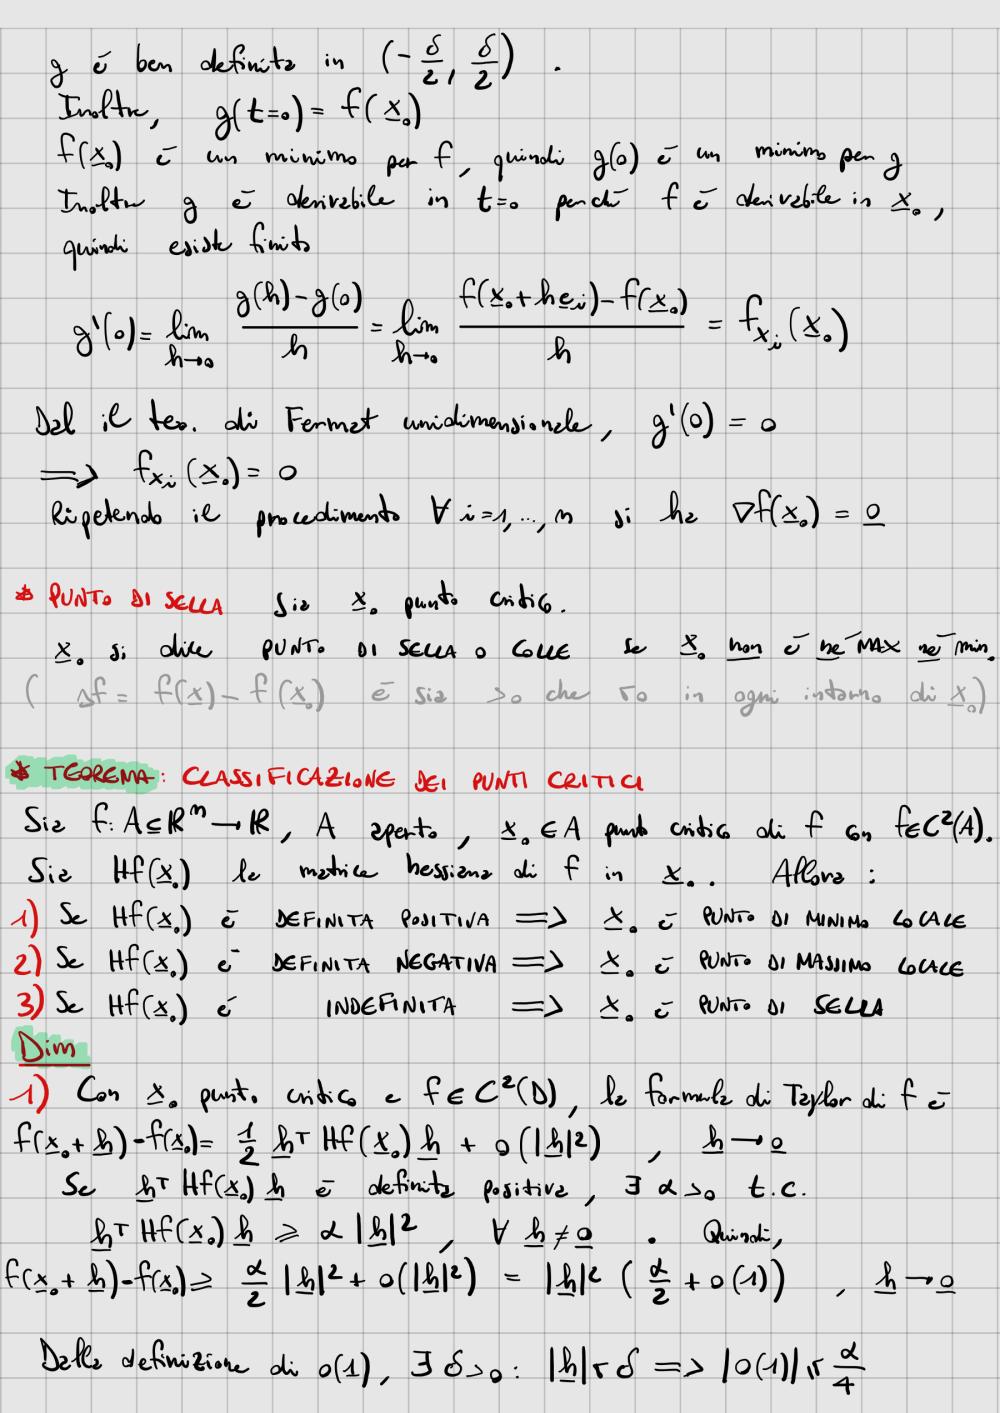 g è ben definita in (-δ/2, δ/2) .
Inoltre, g(t=0) = f(x₀)
f(x₀) è un minimo per f, quindi g(0) è un minimo per g
Inoltre g è derivabile in t=0 perché f è derivabile in x₀,
quindi esiste finito
g'(0) = lim_{h→0} (g(h)-g(0))/h = lim_{h→0} (f(x₀+he_i)-f(x₀))/h = f_{x_i}(x₀)
Dal il teo. di Fermat unidimensionale, g'(0) = 0
⟹ f_{x_i}(x₀) = 0
Ripetendo il procedimento ∀ i=1,...,n si ha ∇f(x₀) = 0
* PUNTO DI SELLA Sia x₀ punto critico.
x₀ si dice PUNTO DI SELLA O COLLE se x₀ non è né MAX né min.
( Δf = f(x) - f(x₀) è sia >0 che <0 in ogni intorno di x₀)
* TEOREMA: CLASSIFICAZIONE DEI PUNTI CRITICI
Sia f: A⊆ℝⁿ → ℝ, A aperto, x₀ ∈ A punto critico di f con f∈C²(A).
Sia Hf(x₀) la matrice hessiana di f in x₀. Allora:
1) Se Hf(x₀) è DEFINITA POSITIVA ⟹ x₀ è PUNTO DI MINIMO LOCALE
2) Se Hf(x₀) è DEFINITA NEGATIVA ⟹ x₀ è PUNTO DI MASSIMO LOCALE
3) Se Hf(x₀) è INDEFINITA ⟹ x₀ è PUNTO DI SELLA
Dim
1) Con x₀ punto critico e f ∈ C²(D), la formula di Taylor di f è
f(x₀+h)-f(x₀) = 1/2 hᵀ Hf(x₀) h + o(|h|²) , h → 0
Se hᵀ Hf(x₀) h è definita positiva, ∃ α>0 t.c.
hᵀ Hf(x₀) h ⩾ α |h|², ∀ h ≠ 0 . Quindi,
f(x₀+h)-f(x₀) ⩾ α/2 |h|² + o(|h|²) = |h|² (α/2 + o(1)) , h → 0
Dalla definizione di o(1), ∃ δ>0 : |h| < δ ⟹ |o(1)| < α/4